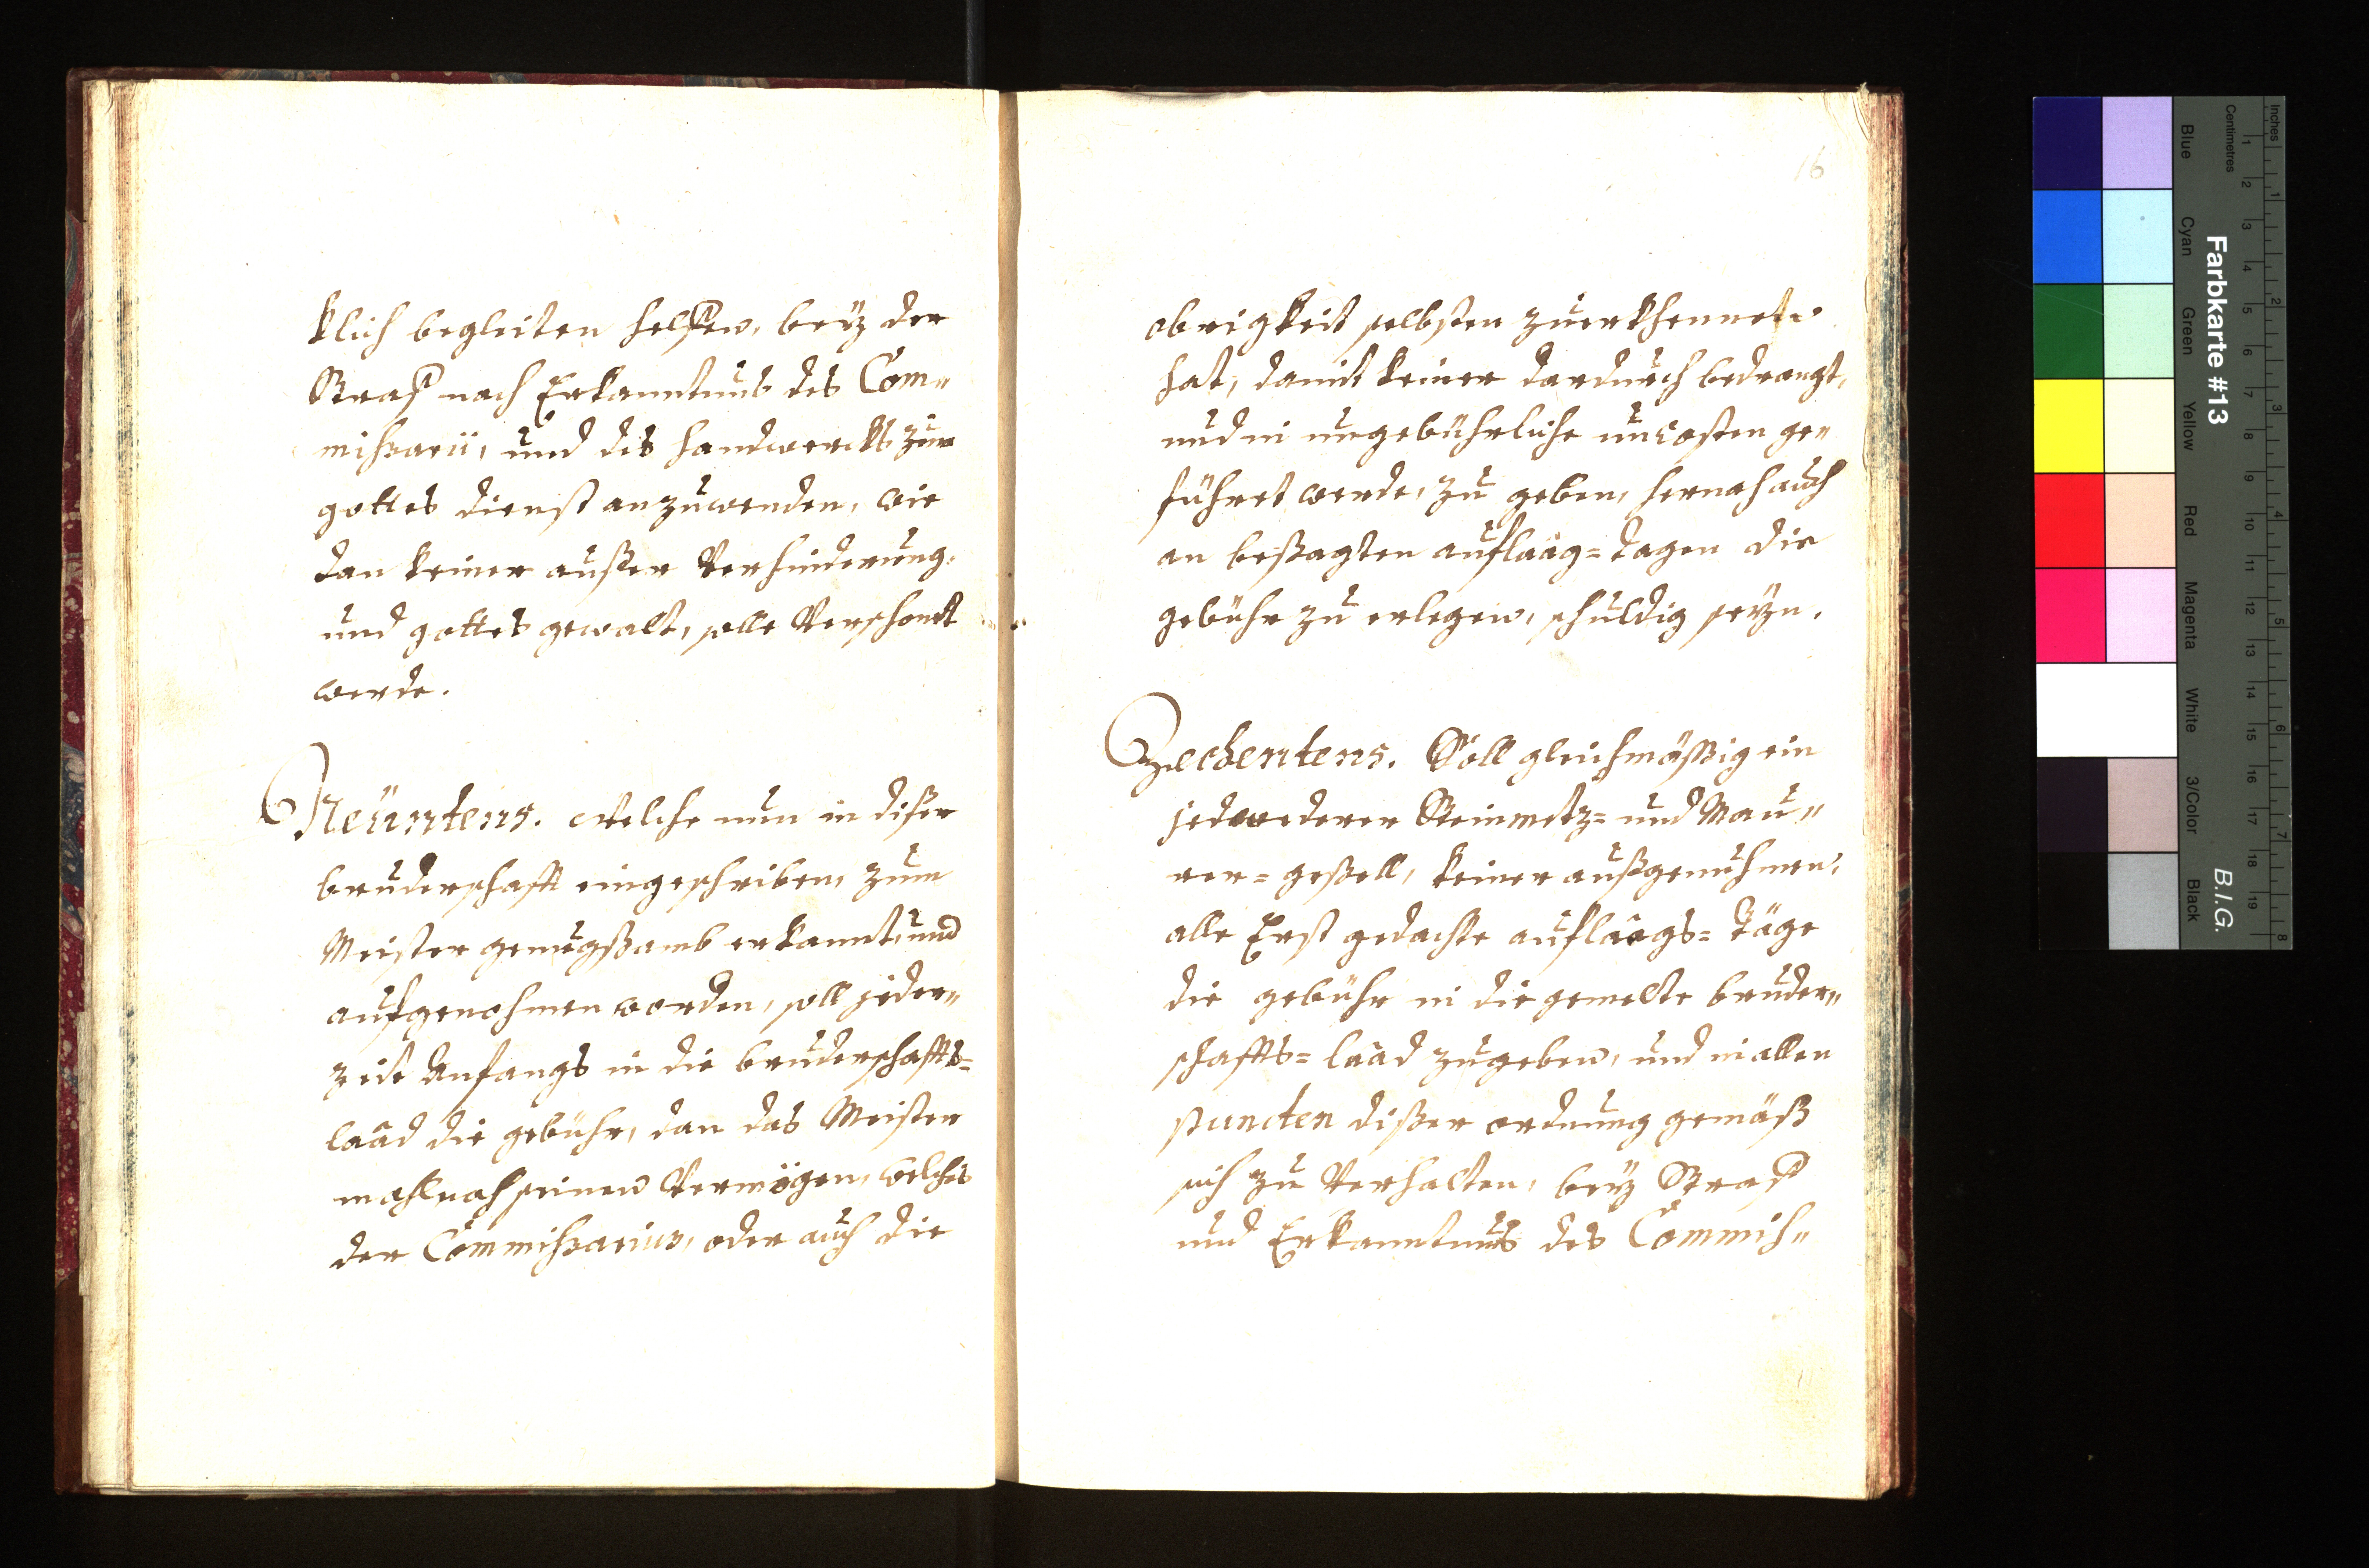 klich begleiten helffen, beÿ der
Straff nach Erkanntnus des Com-
mißarii, und des handwerckhs zum
gottes dienst anzuwenden, wie
dan keiner ausser Verhinderung
und gottes gewalt, solle Verschont
werde.
Neüntens. Welche nun in diser
bruderschafft eingeschriben, zum
Meister genugsamb erkannt, und
aufgenohmen worden, soll jeder-
zeit Anfangs in die bruderschaffts=
laad die gebühr, dan das Meister
mahl nach seinen Vermögen, welches
der Commißarius, oder auch die
16
obrigkeit selbsten zuerkhennet
hat, damit keiner dardurch bedrangt,
und in ungebührliche uncosten ge-
führet werde, zu geben, hernach auch
an besagten auflaag=tagen die
gebühr zu erlegen, schuldig seÿn.
Zechentens. Soll gleichmässig ein
jedwederer Steinmetz= und Mau-
rer=gesell, keiner außgenuhmen,
alle Erst gedachte auflaags=täge
die gebühr in die gemelte bruder-
schaffts=laad zugeben, und in allen
puncten diser ordnung gemäß
sich zu Verhalten, beÿ Straff
und Erkanntnus des Commiß-
Farbkarte #13
B.I.G.
Inches
Centimetres
1 2 3 4 5 6 7 8 9 10 11 12 13 14 15 16 17 18 19
1 2 3 4 5 6 7 8
Blue Cyan Green Yellow Red Magenta White 3/Color Black